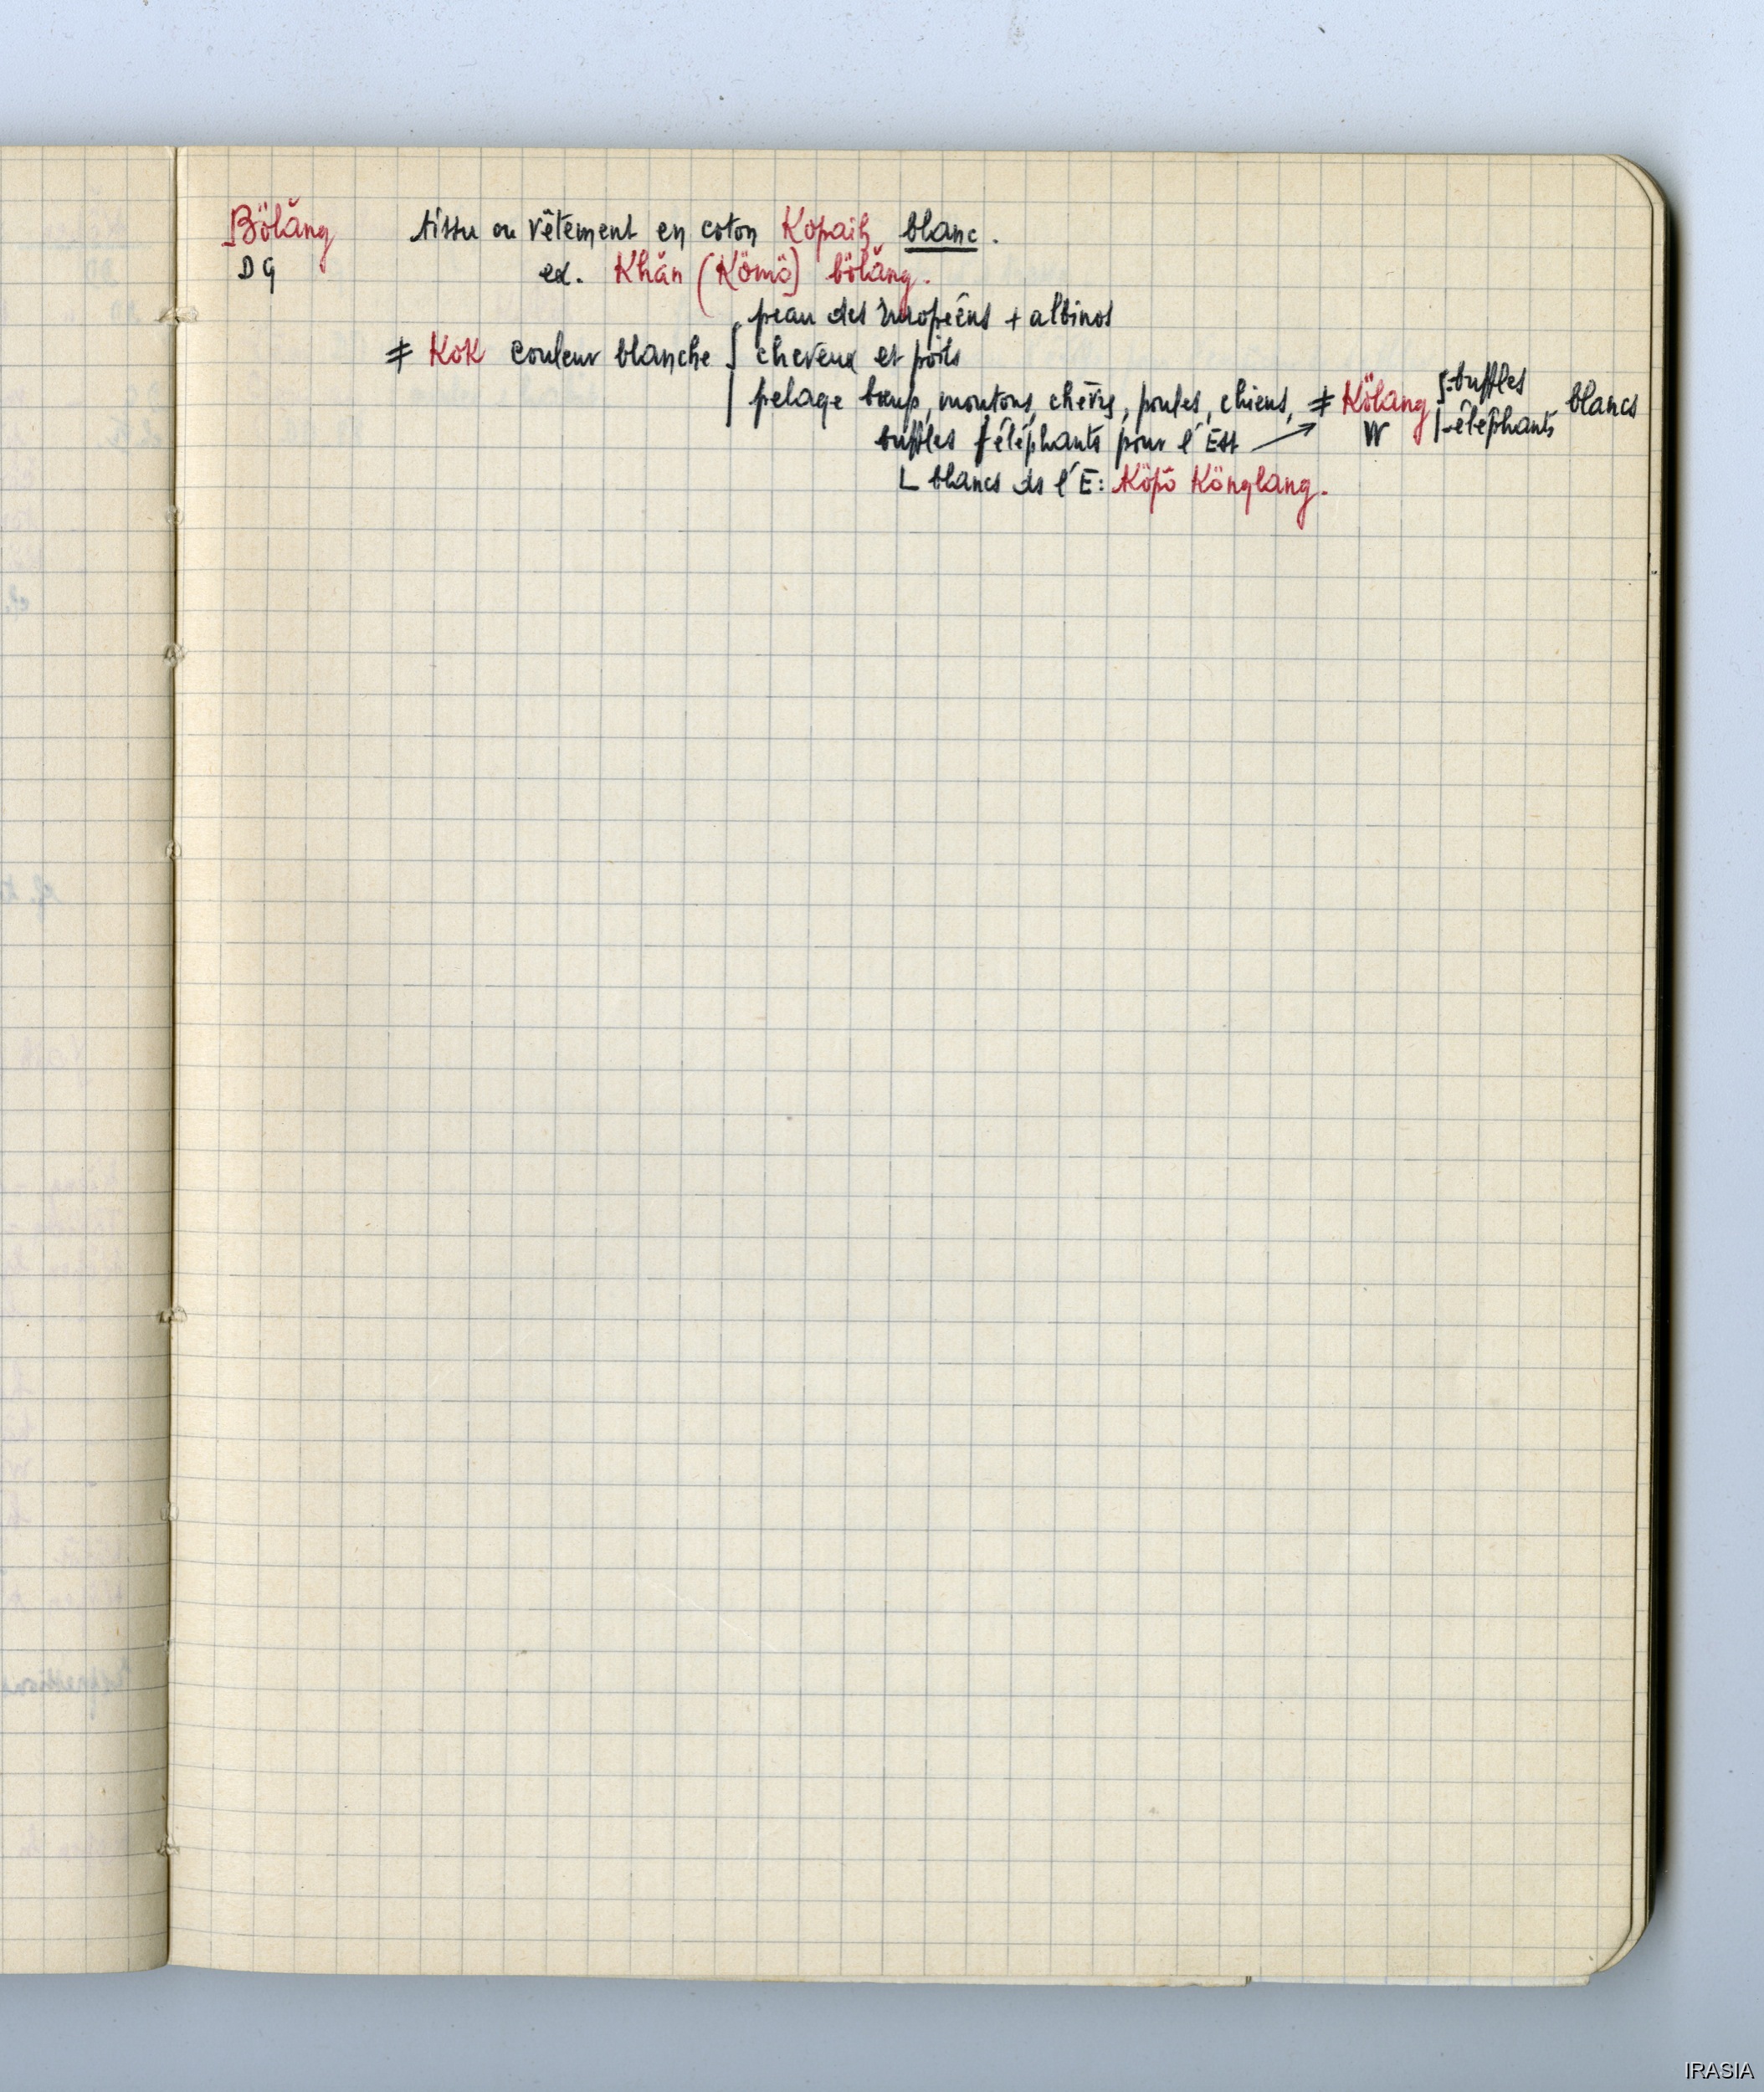 Bölăng tissu ou vêtement en coton Kopaih blanc.
DG ex. Khăn (Kömö) bölăng.
peau des Européens + albinos
≠ Kok couleur blanche cheveux et poils
pelage bœufs, moutons, chèvres, poules, chiens, ≠ Kölang - buffles - éléphants blancs
W
buffles éléphants pour l'Est →
L blancs ds l'E: Köpô Könglang.
IRASIA